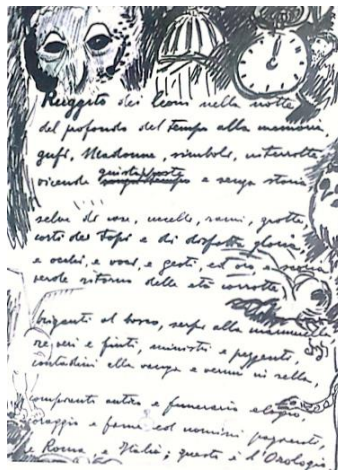 Ruggito dei leoni nella notte
dal profondo del tempo alla memoria,
gufi, Madonne, simboli, interrotte
vicende giustapposte e senza storia
selve di rose, uccelli, rami, grotte
corti dei topi e di disfatta gloria
e occhi, e voci, e gesti, ed
verde ritorno delle età corrotte,
briganti al bosco, serpi alle
re veri e finti, ministri e pezzenti,
contadini alla vanga e vermi in sella,
compianto antico e funerario elogio,
coraggio e fame ed uomini
e Roma, e Italia; questo è l'Orologio